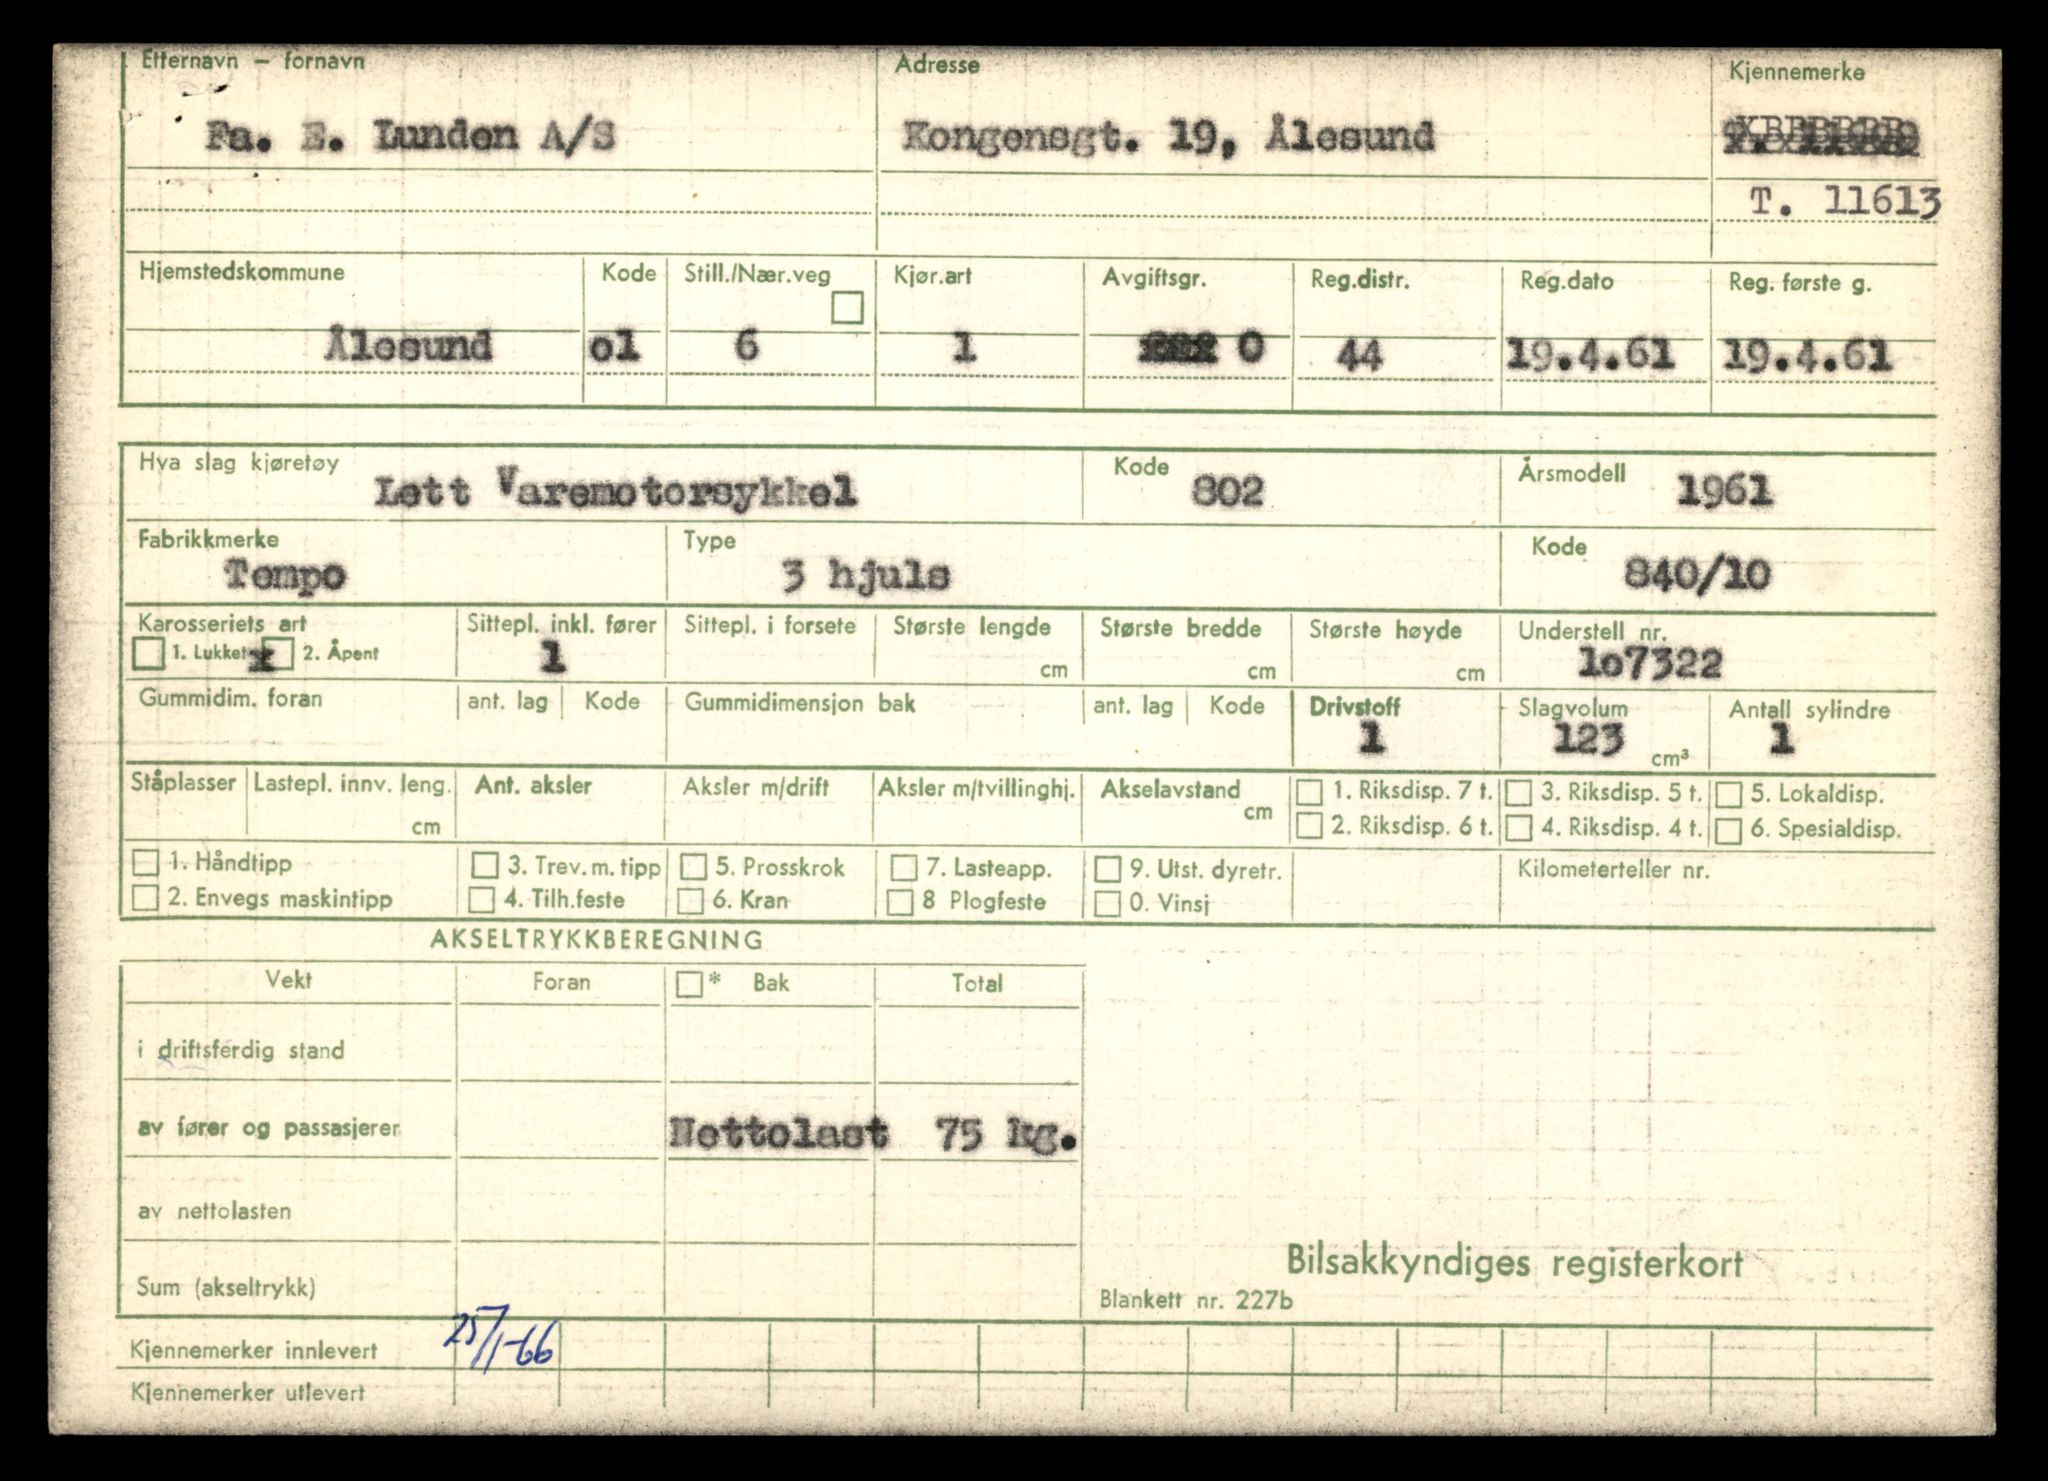 Etternavn – fornavn Adresse Kjennemerke
Fa. E. Lunden A/S Kongensgt. 19, Ålesund
T. 11613
Hjemstedskommune Kode Still./Nær.veg Kjør.art Avgiftsgr. Reg.distr. Reg.dato Reg. første g.
Ålesund o1 6 1 0 44 19.4.61 19.4.61
Hva slag kjøretøy Kode Årsmodell
Lett Varemotorsykkel 802 1961
Fabrikkmerke Type Kode
Tempo 3 hjuls 840/10
Karosseriets art Sittepl. inkl. fører Sittepl. i forsete Største lengde Største bredde Største høyde Understell nr.
1. Lukket x 2. Åpent 1 cm cm cm 1o7322
Gummidim. foran ant. lag Kode Gummidimensjon bak ant. lag Kode Drivstoff Slagvolum Antall sylindre
1 123 cm³ 1
Ståplasser Lastepl. innv. leng. Ant. aksler Aksler m/drift Aksler m/tvillinghj. Akselavstand 1. Riksdisp. 7 t. 3. Riksdisp. 5 t. 5. Lokaldisp.
cm cm 2. Riksdisp. 6 t. 4. Riksdisp. 4 t. 6. Spesialdisp.
1. Håndtipp 3. Trev. m. tipp 5. Prosskrok 7. Lasteapp. 9. Utst. dyretr. Kilometerteller nr.
2. Envegs maskintipp 4. Tilh.feste 6. Kran 8 Plogfeste 0. Vinsj
AKSELTRYKKBEREGNING
Vekt Foran * Bak Total
i driftsferdig stand
av fører og passasjerer Nettolast 75 kg.
av nettolasten
Sum (akseltrykk)
Bilsakkyndiges registerkort
Blankett nr. 227b
Kjennemerker innlevert 25/1-66
Kjennemerker utlevert